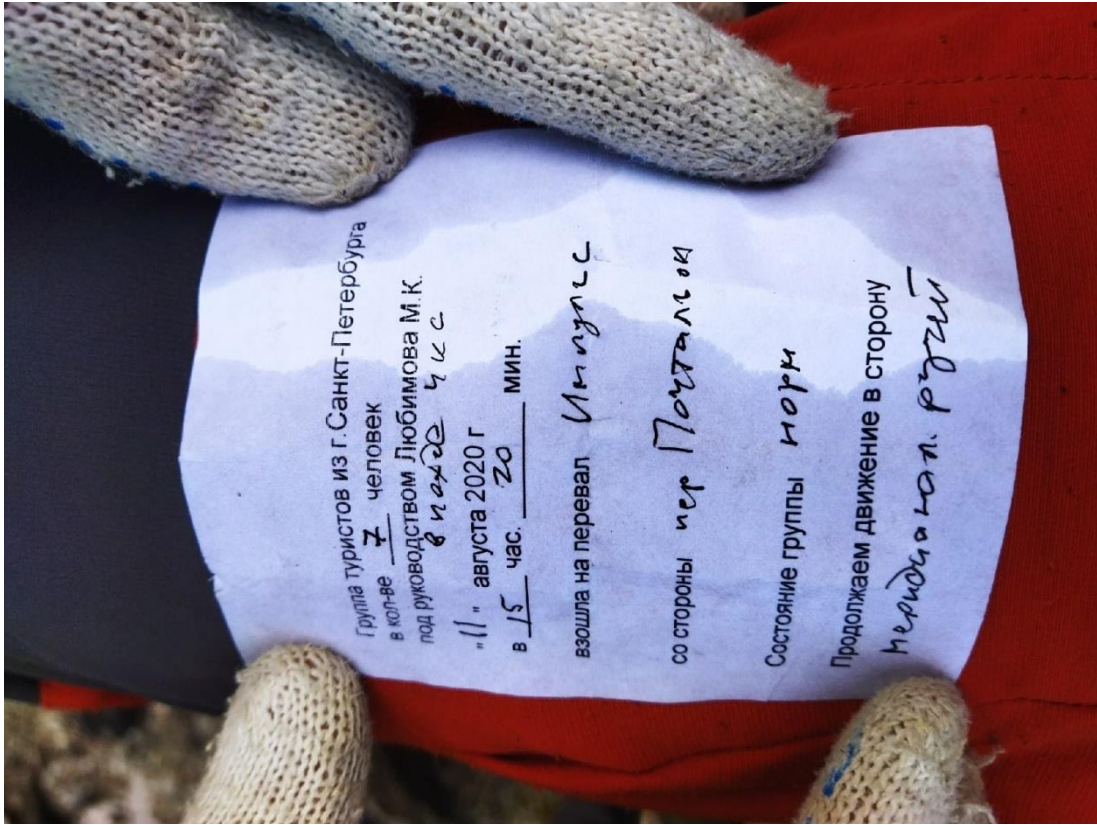 Группа туристов из г. Санкт-Петербурга
в кол-ве 7 человек
под руководством Любимова М.К.
в походе 4 к с
"11" августа 2020 г
в 15 час. 20 мин.
взошла на перевал Импульс
со стороны пер Почтальон
Состояние группы норм
Продолжаем движение в сторону
меридионал. ручей